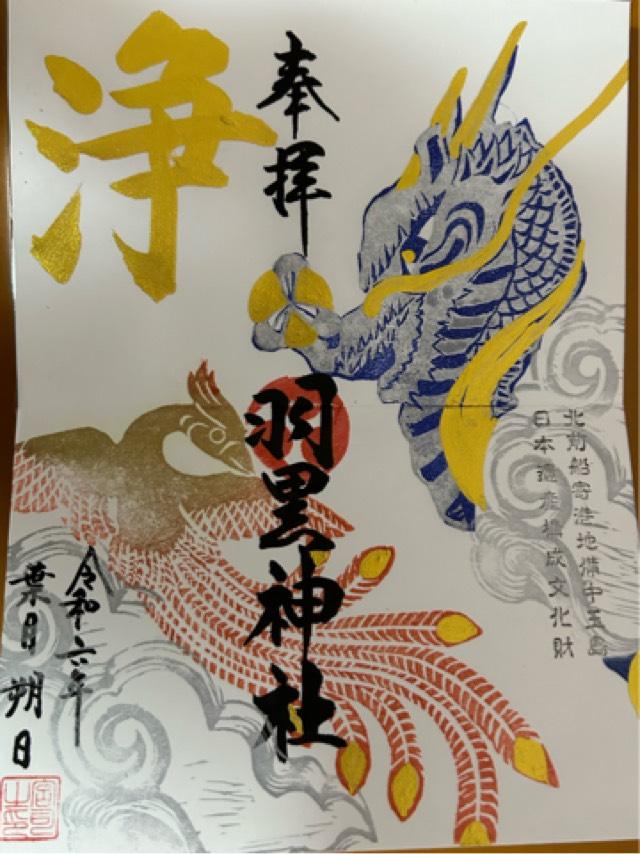 奉拝
浄
羽黒神社
北前船寄港地備中玉島
日本遺産構成文化財
令和六年
葉月朔日
宮司之印